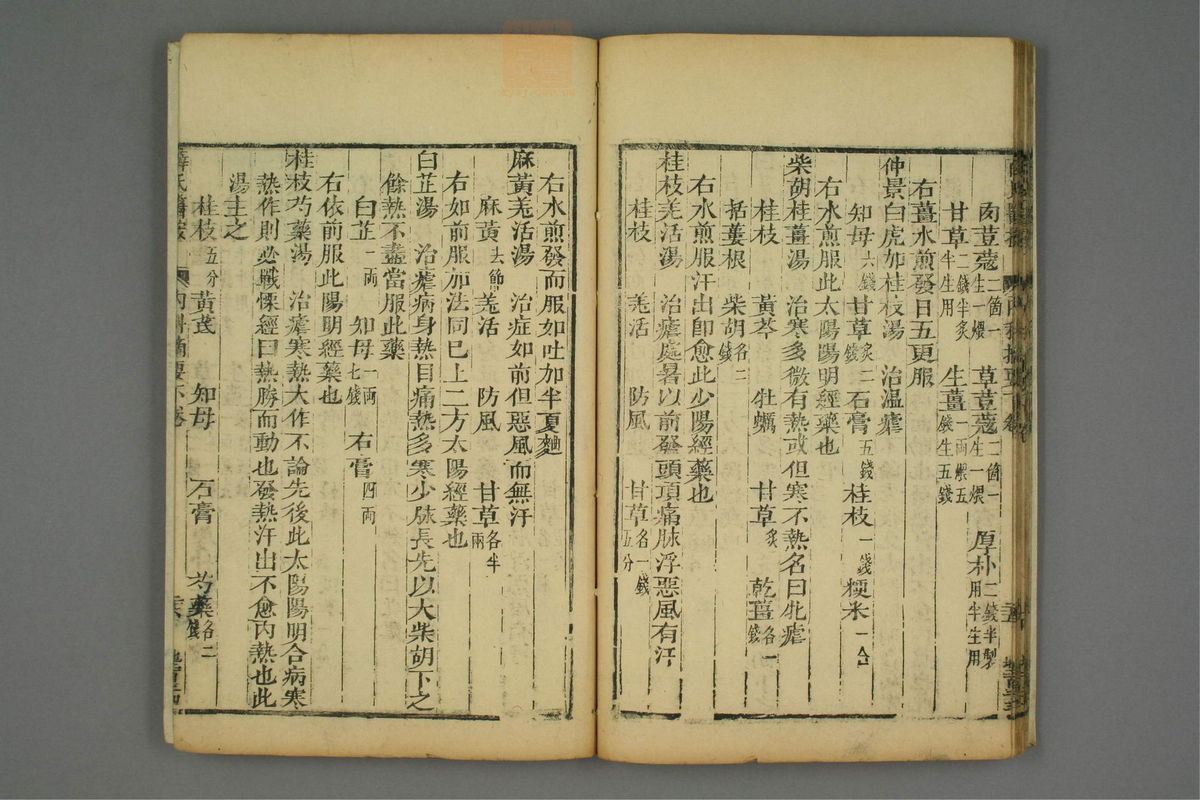 肉荳蔻二箇一生一煨 草荳蔻二箇一生一煨 厚朴二錢半製用半生用
甘草二錢半炙半生用 生薑一兩煨五錢生五錢
右薑水煎發日五更服
仲景白虎加桂枝湯 治温瘧
知母六錢 甘草炙二錢 石膏五錢 桂枝一錢 粳米一合
右水煎服此太陽陽明經藥也
柴胡桂薑湯 治寒多微有熱或但寒不熱名曰牝瘧
桂枝 黃芩 牡蠣 甘草炙 乾薑各一錢
括蔞根 柴胡各二錢
右水煎服汗出卽愈此少陽經藥也
桂枝羌活湯 治瘧處暑以前發頭項痛脉浮惡風有汗
桂枝 羌活 防風 甘草各一錢五分
右水煎發而服如吐加半夏麯
麻黃羌活湯 治症如前但惡風而無汗
麻黃去節 羌活 防風 甘草各半兩
右如前服加法同巳上二方太陽經藥也
白芷湯 治瘧病身熱目痛熱多寒少脉長先以大柴胡下之
餘熱不盡當服此藥
白芷一兩 知母一兩七錢 石膏四兩
右依前服此陽明經藥也
桂枝芍藥湯 治瘧寒熱大作不論先後此太陽陽明合病寒
熱作則必戰慄經曰熱勝而動也發熱汗出不愈內熱也此
湯主之
桂枝五分 黃茋 知母 石膏 芍藥各二錢
薛氏醫按 內科摘要下卷